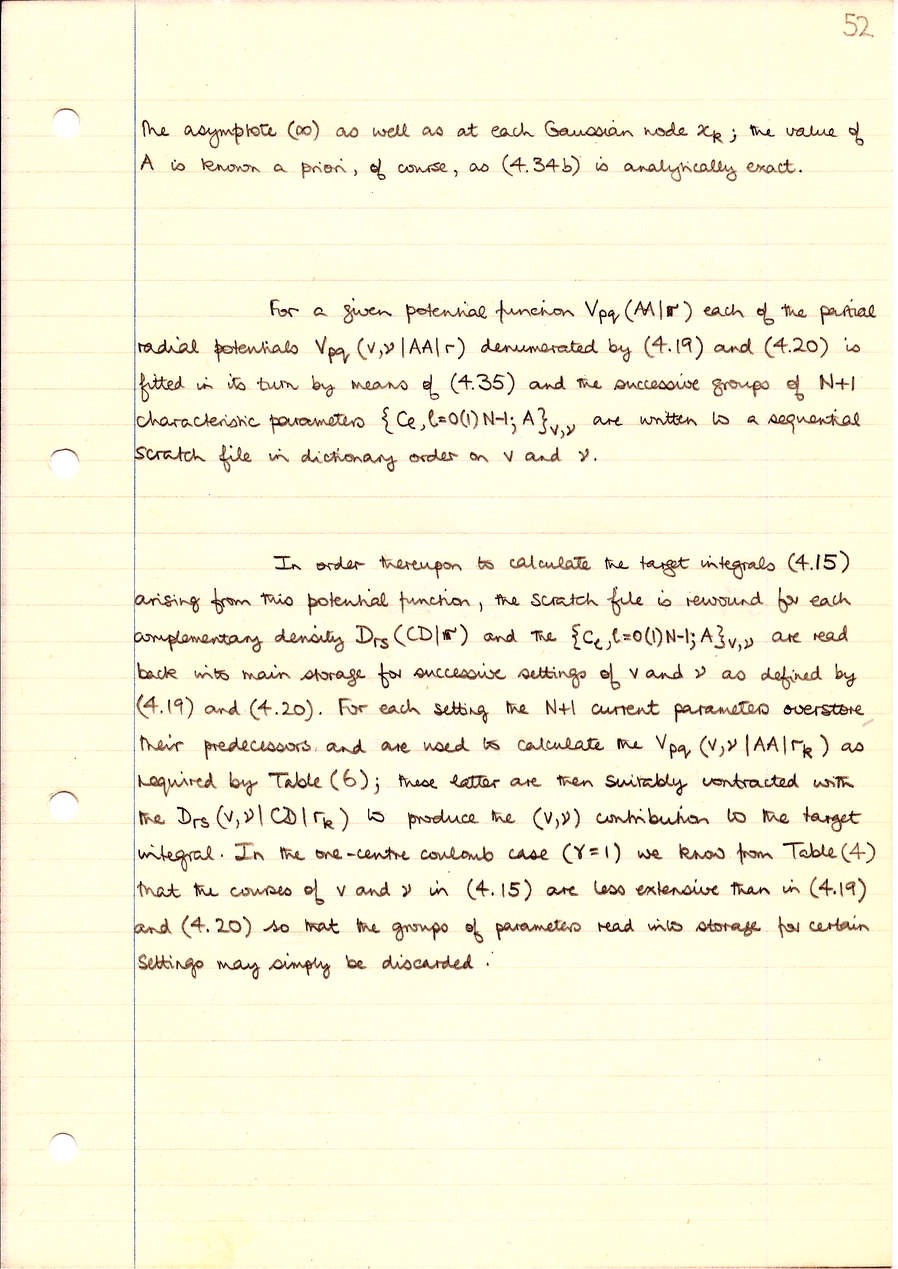 52
the asymptote (∞) as well as at each Gaussian node xₖ ; the value of
A is known a priori, of course, as (4.34b) is analytically exact.
For a given potential function Vpq (AA|𝕣) each of the partial
radial potentials Vpq (v,ν|AA|r) denumerated by (4.19) and (4.20) is
fitted in its turn by means of (4.35) and the successive groups of N+1
characteristic parameters {Cℓ, ℓ=0(1)N-1; A}v,ν are written to a sequential
scratch file in dictionary order on v and ν.
In order thereupon to calculate the target integrals (4.15)
arising from this potential function, the scratch file is rewound for each
complementary density Drs (CD|𝕣) and the {Cℓ, ℓ=0(1)N-1; A}v,ν are read
back into main storage for successive settings of v and ν as defined by
(4.19) and (4.20). For each setting the N+1 current parameters overstore
their predecessors and are used to calculate the Vpq (v,ν|AA|rₖ) as
required by Table (6); these latter are then suitably contracted with
the Drs (v,ν|CD|rₖ) to produce the (v,ν) contribution to the target
integral. In the one-centre coulomb case (γ=1) we know from Table (4)
that the courses of v and ν in (4.15) are less extensive than in (4.19)
and (4.20) so that the groups of parameters read into storage for certain
settings may simply be discarded.